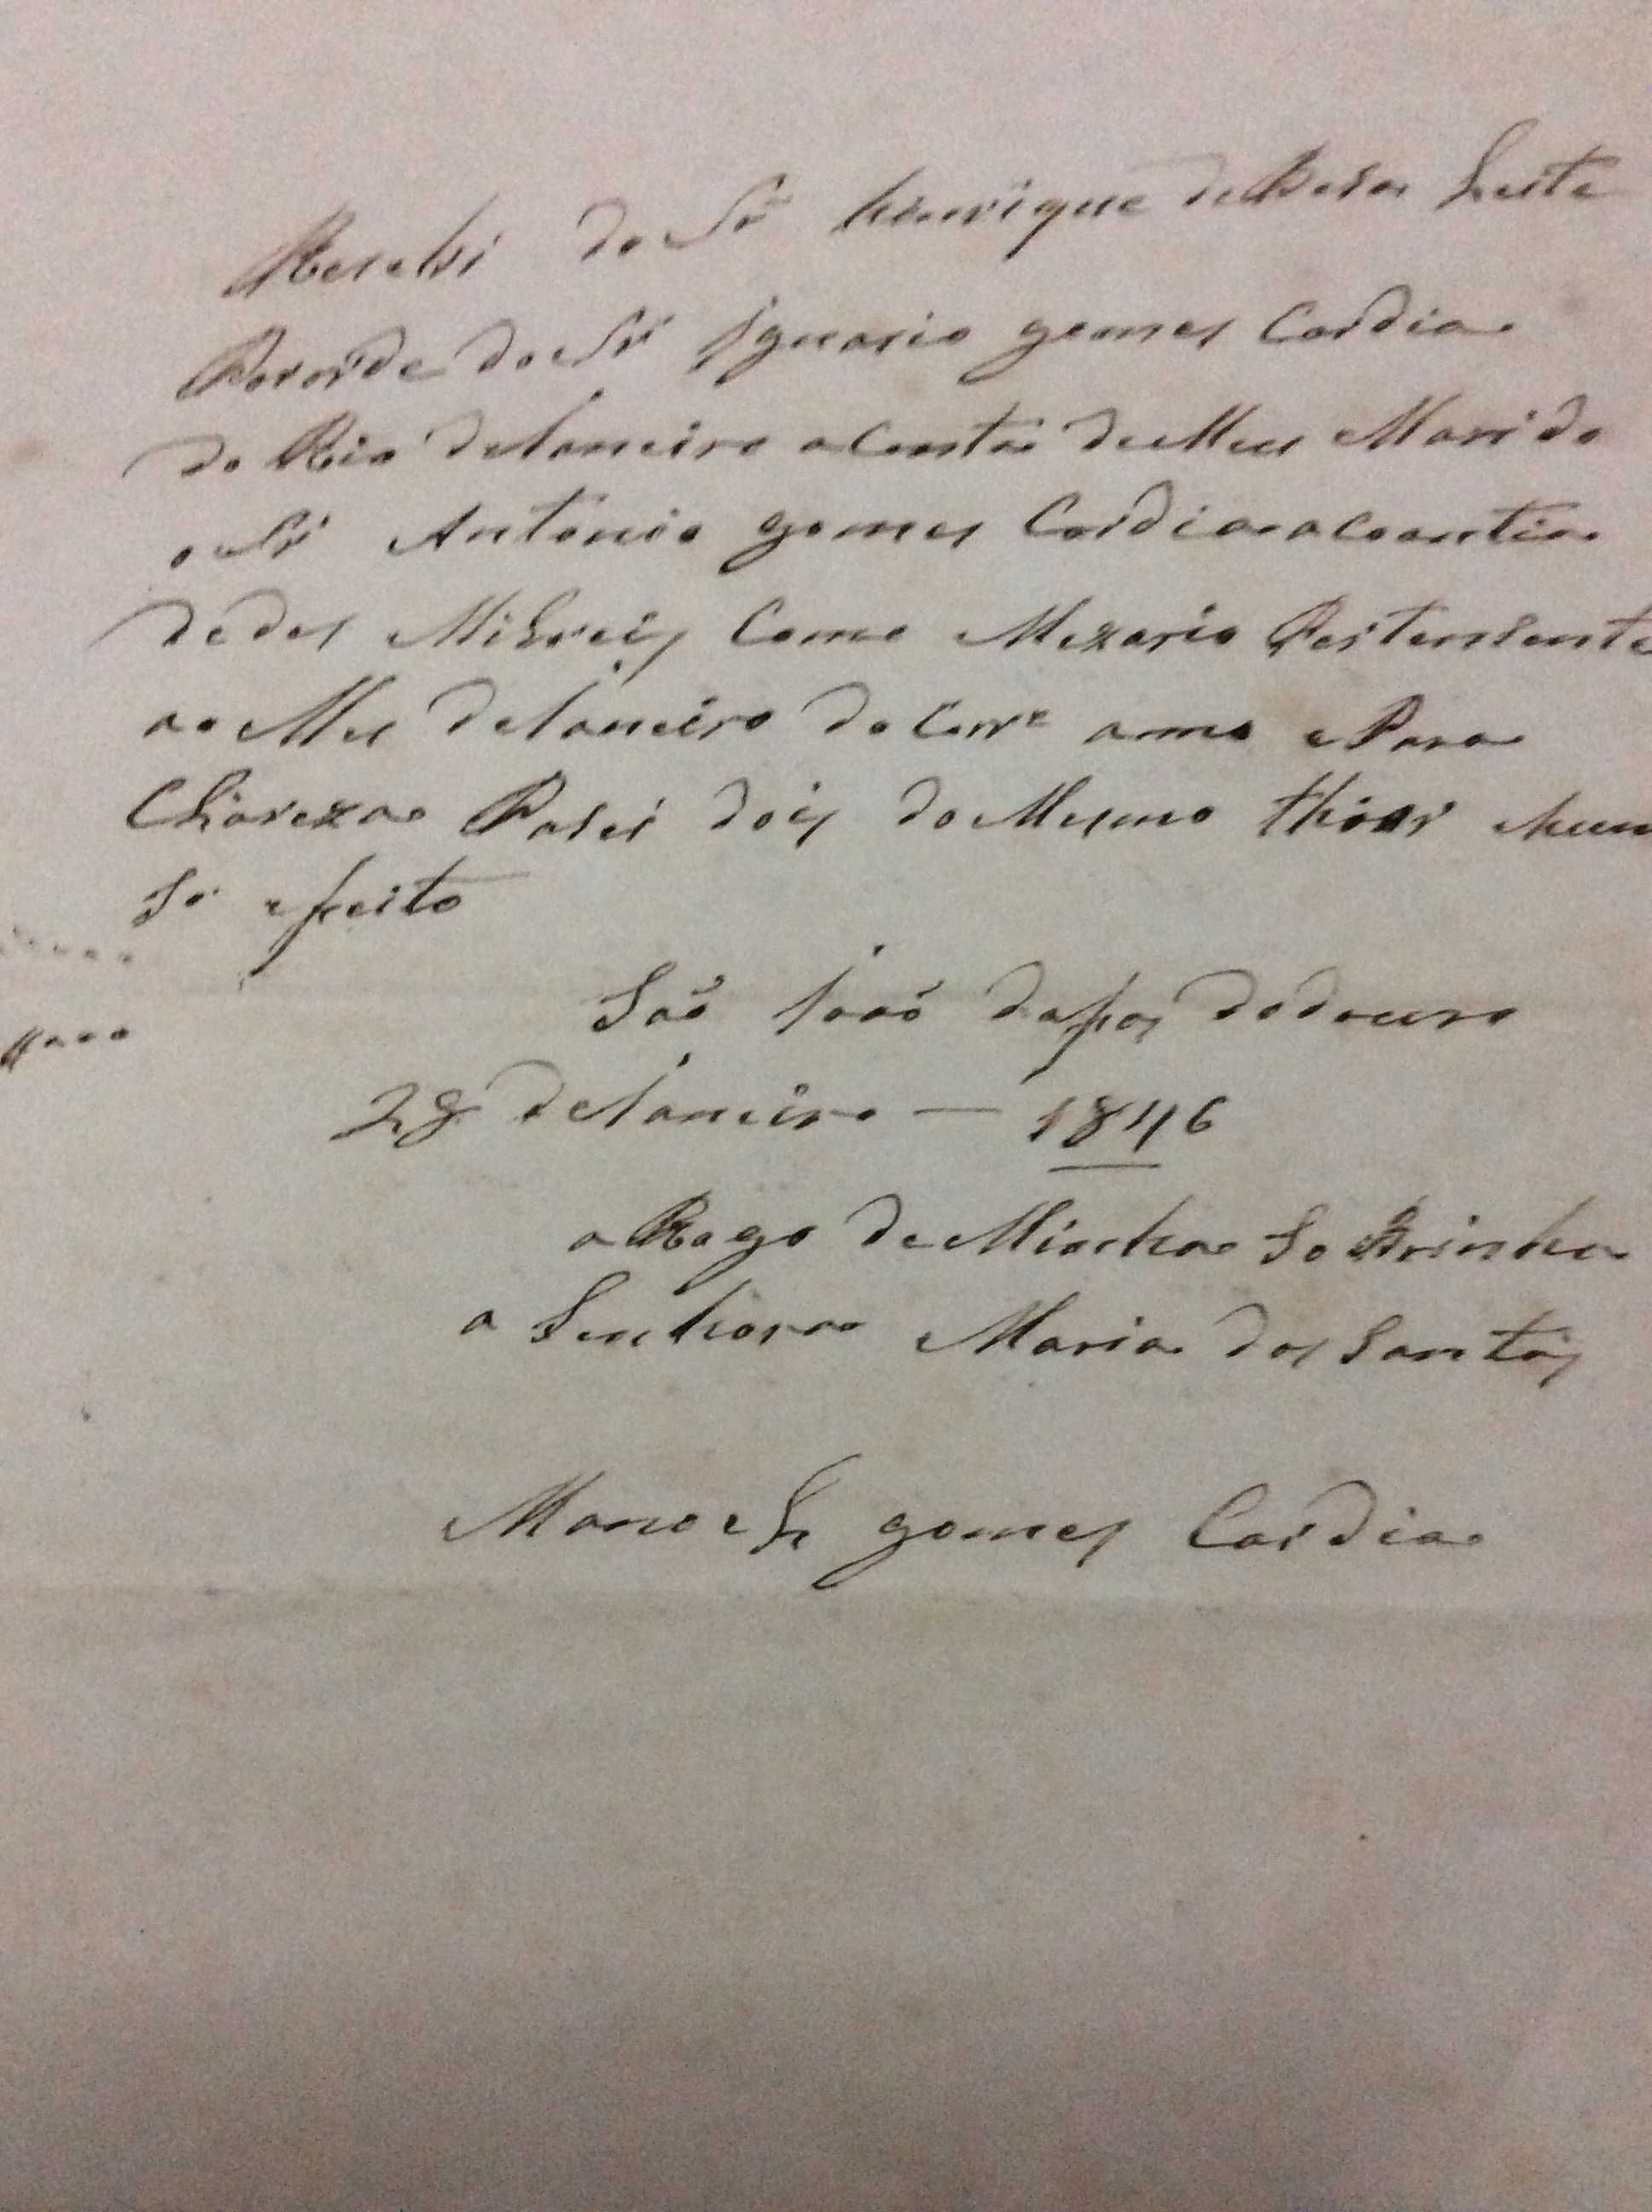 Resebi do Sr henrique de Besa Leite
Pororde do Sr Ignasio gomes Cardia
do Rio deJaneiro aConta deMeu Marido
o Sr Antonio gomes Cardia acoantia
dedes MilReis Como Mezario Pertensente
ao Mes deJaneiro do Corre anno e Para
Clareza Pasei dois do Mesmo thior hum
So efeito
São João dafos dodouro
28 deJaneiro — 1846
a Rogo de Minha SoBrinha
a Senhora Maria dos Santos
Manoel gomes Cardia